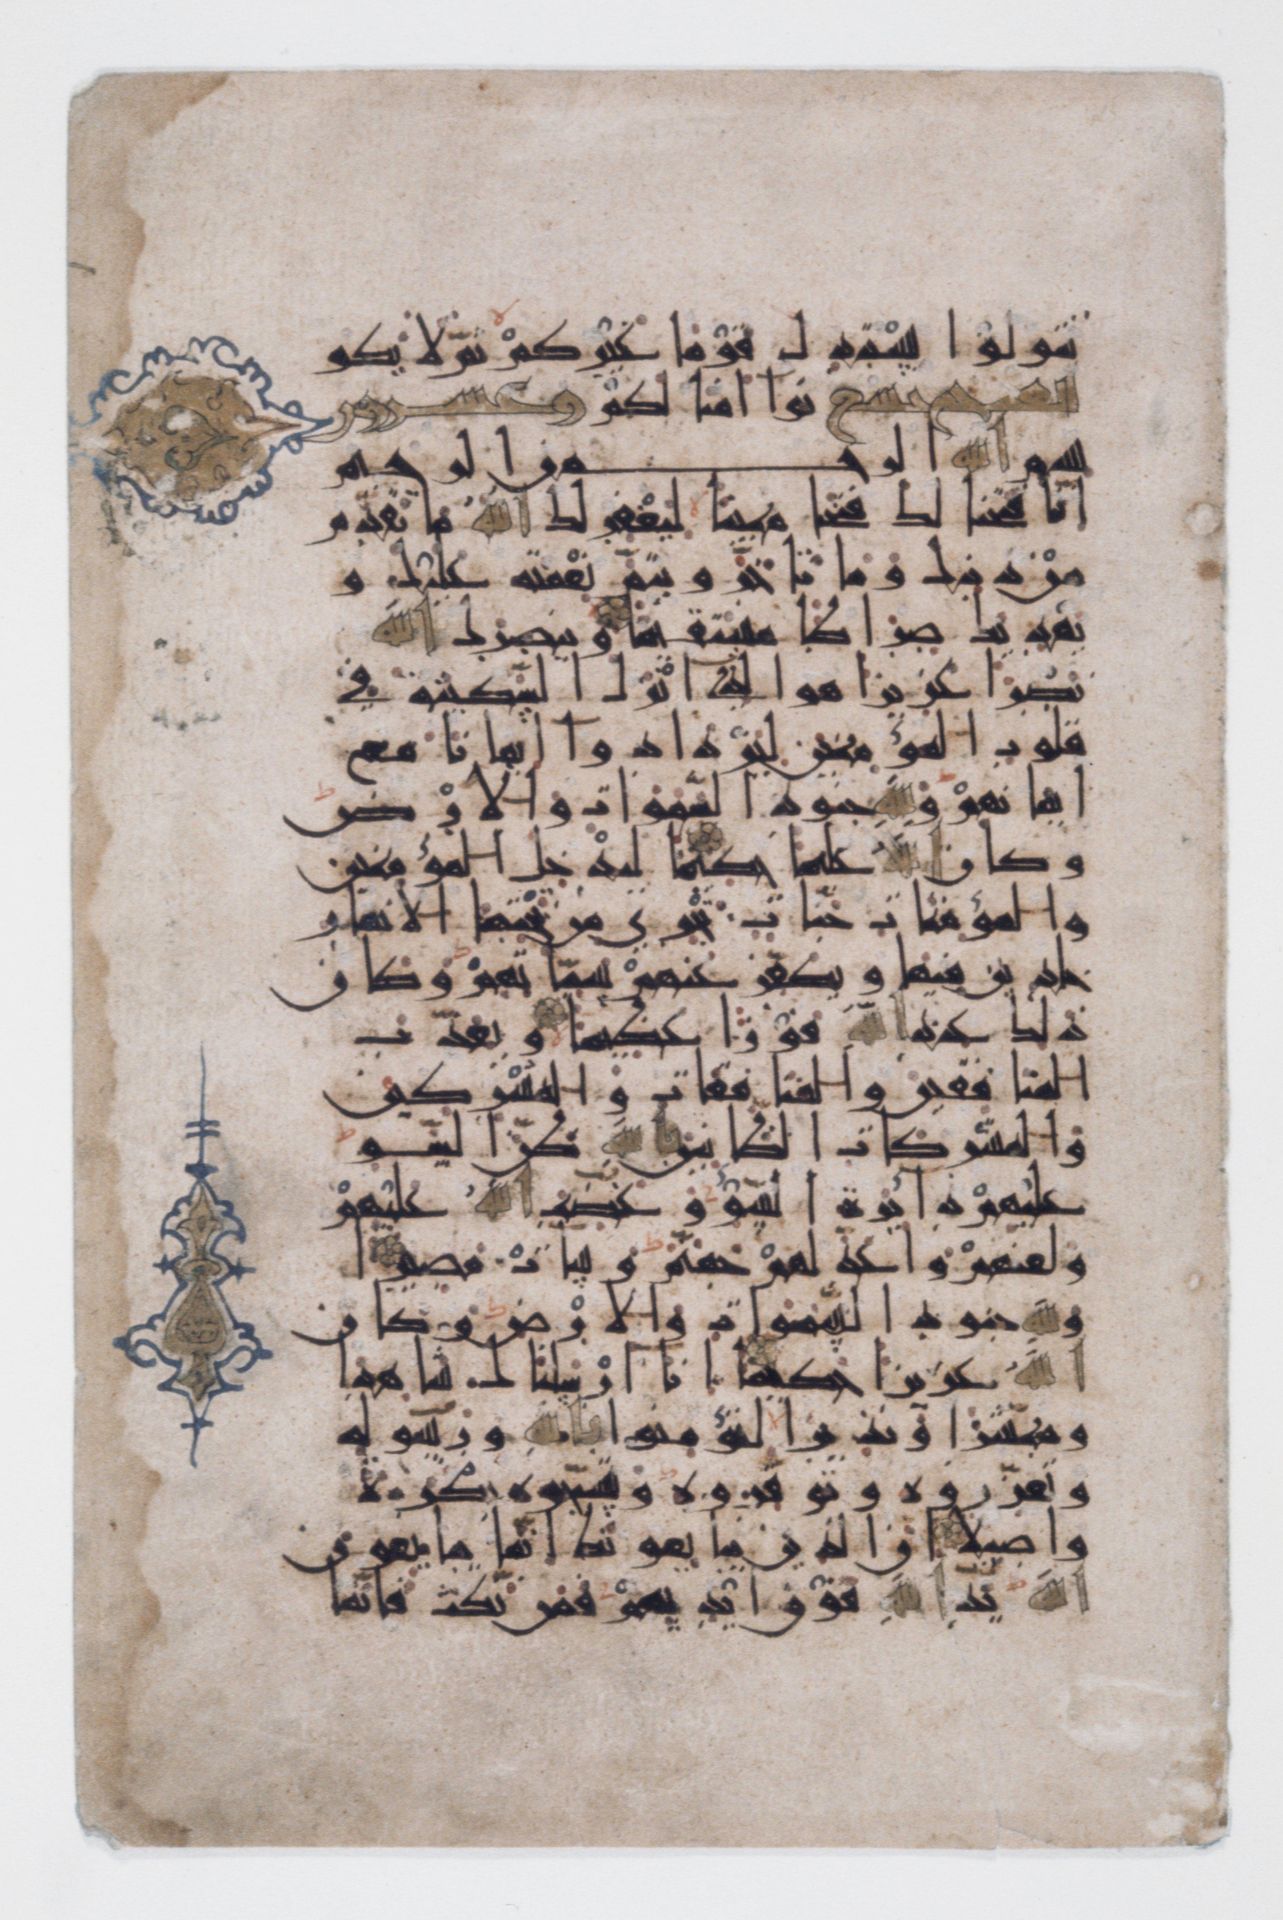 تتولوا يستبدل قوما غيركم ثم لا يكو
نوا امثالكم الفتح تسع وعشرون
بسم الله الرحمن الرحيم
انا فتحنا لك فتحا مبينا ليغفر لك الله ما تقدم
من ذنبك وما تاخر ويتم نعمته عليك و
يهديك صراطا مستقيما وينصرك الله
نصرا عزيزا هو الذي انزل السكينة في
قلوب المؤمنين ليزدادوا ايمانا مع
ايمانهم ولله جنود السموات والارض
وكان الله عليما حكيما ليدخل المؤمنين
والمؤمنات جنات تجري من تحتها الانهار
خالدين فيها ويكفر عنهم سيئاتهم وكان
ذلك عند الله فوزا عظيما ويعذب
المنافقين والمنافقات والمشركين
والمشركات الظانين بالله ظن السو
عليهم دائرة السوء وغضب الله عليهم
ولعنهم واعد لهم جهنم وساءت مصيرا
ولله جنود السموات والارض وكان
الله عزيزا حكيما انا ارسلناك شاهدا
ومبشرا ونذيرا لتؤمنوا بالله ورسوله
وتعزروه وتوقروه وتسبحوه بكرة
واصيلا ان الذين يبايعونك انما يبايعون
الله يد الله فوق ايديهم فمن نكث فانما